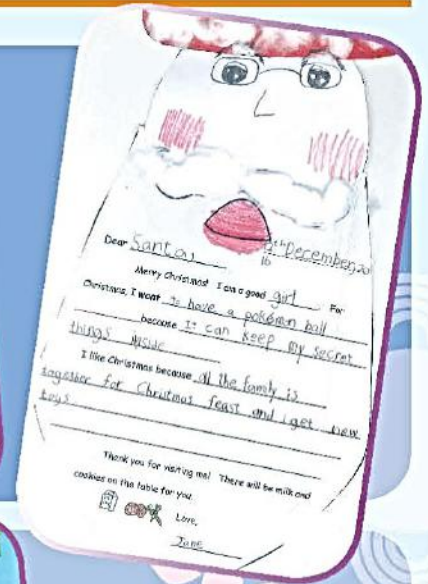 Dear Santa, 8th December, 20
16
Merry Christmas! I am a good girl For
Christmas, I want to have a pokémon ball
because it can keep my secret
things inside
I like Christmas because all the family is
together for Christmas feast and i get new
toys
Thank you for visiting me! There will be milk and
cookies on the table for you.
Love,
Jane